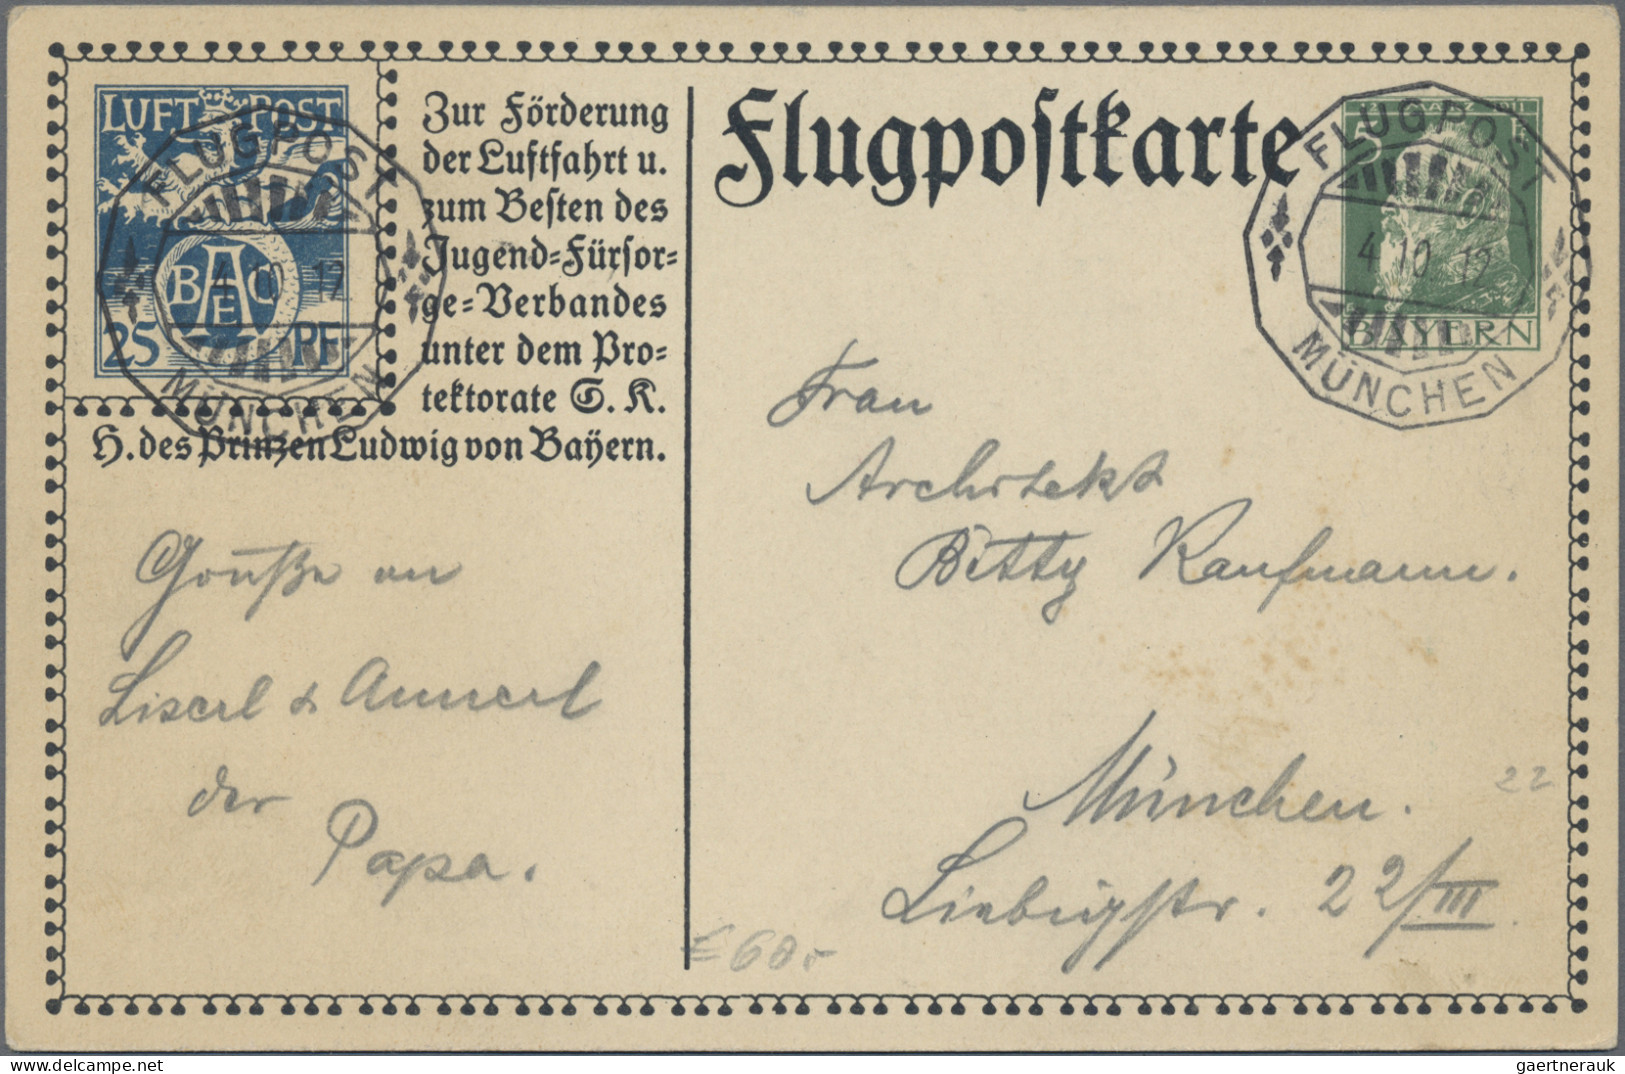 LUFT POST
BAEC
25 PF
FLUGPOST
4 10 12
MÜNCHEN
Zur Förderung
der Luftfahrt u.
zum Besten des
Jugend=Fürsor=
ge=Verbandes
unter dem Pro=
tektorate S. K.
H. des Prinzen Ludwig von Bayern.
Flugpostkarte
5 Pf
BAYERN
FLUGPOST
4 10 12
MÜNCHEN
Frau
Architekt
Betty Kaufmann.
München.
Liebigstr. 22/III
22
Grüße an
Liserl & Annerl
der
Papa.
€ 60,-
gaertnerauk / delcampe.net